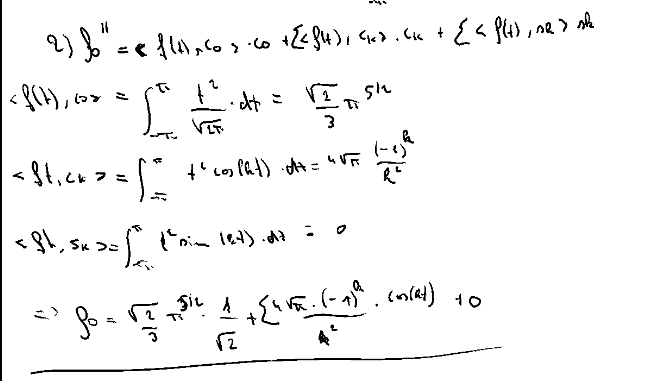 2) f₀ᴴ = < f(t), c₀ > · c₀ + Σ < f(t), cₖ > · cₖ + Σ < f(t), sₖ > sₖ
< f(t), c₀ > = ∫_{-π}^{π} t²/√2π · dt = √2/3 π^{5/2}
< ft, cₖ > = ∫_{-π}^{π} t² cos(kt) · dt = 4√π (-1)^k/k²
< ft, sₖ > = ∫_{-π}^{π} t² sin(kt) · dt = 0
=> f₀ = √2/3 π^{5/2} · 1/√2 + Σ 4√π · (-1)^k/k² · cos(kt) + 0